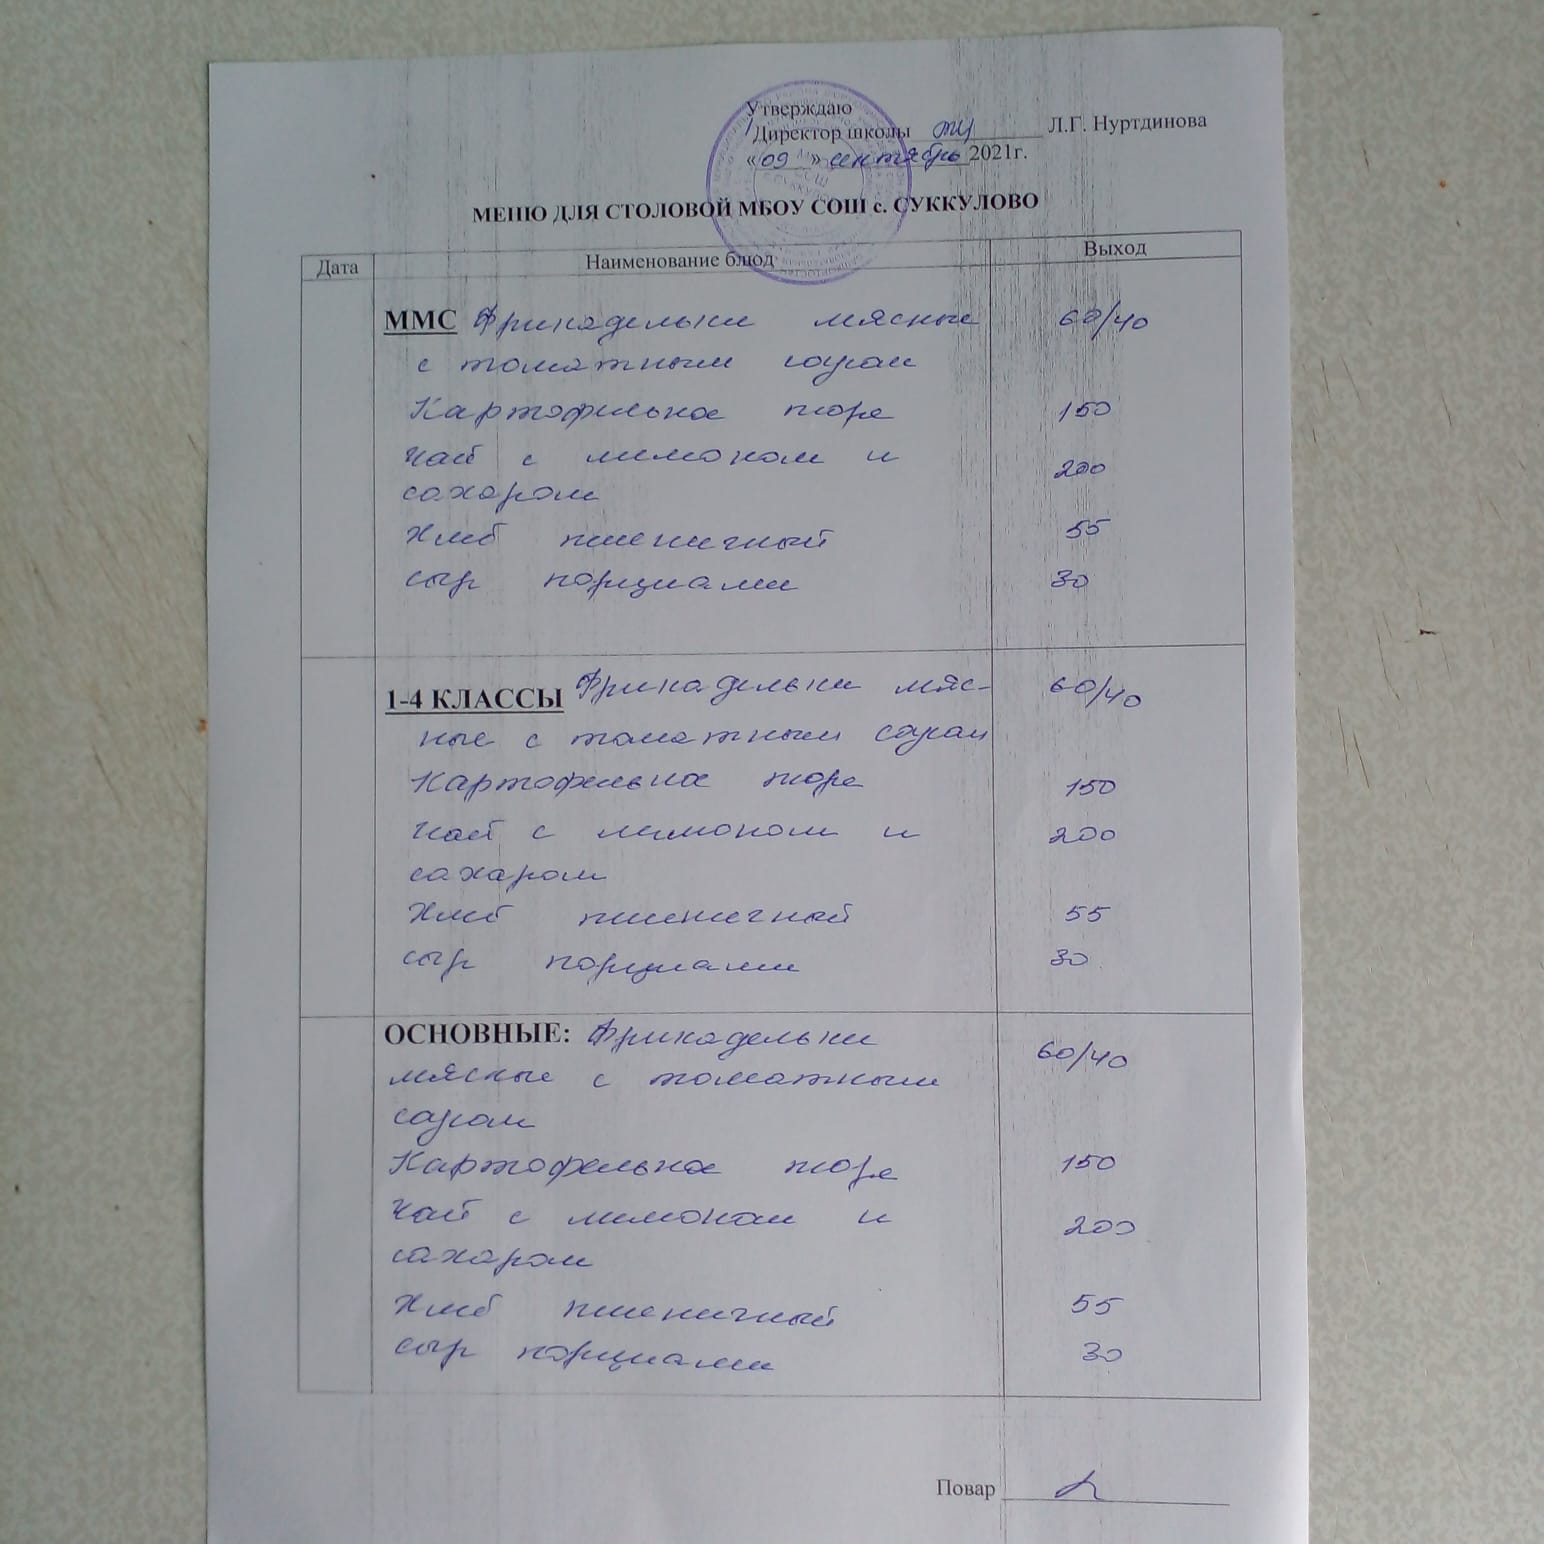 Утверждаю
Директор школы Л.Г. Нуртдинова
«09» сентябрь 2021г.
МЕНЮ ДЛЯ СТОЛОВОЙ МБОУ СОШ с. СУККУЛОВО
Дата Наименование блюд Выход
ММС Фрикадельки мясные 60/40
с томатным соусом
Картофельное пюре 150
Чай с лимоном и 200
сахаром
Хлеб пшеничный 55
сыр порциями 30
1-4 КЛАССЫ Фрикадельки мяс- 60/40
ные с томатным соусом
Картофельное пюре 150
Чай с лимоном и 200
сахаром
Хлеб пшеничный 55
сыр порциями 30
ОСНОВНЫЕ: Фрикадельки 60/40
мясные с томатным
соусом
Картофельное пюре 150
Чай с лимоном и 200
сахаром
Хлеб пшеничный 55
сыр порциями 30
Повар